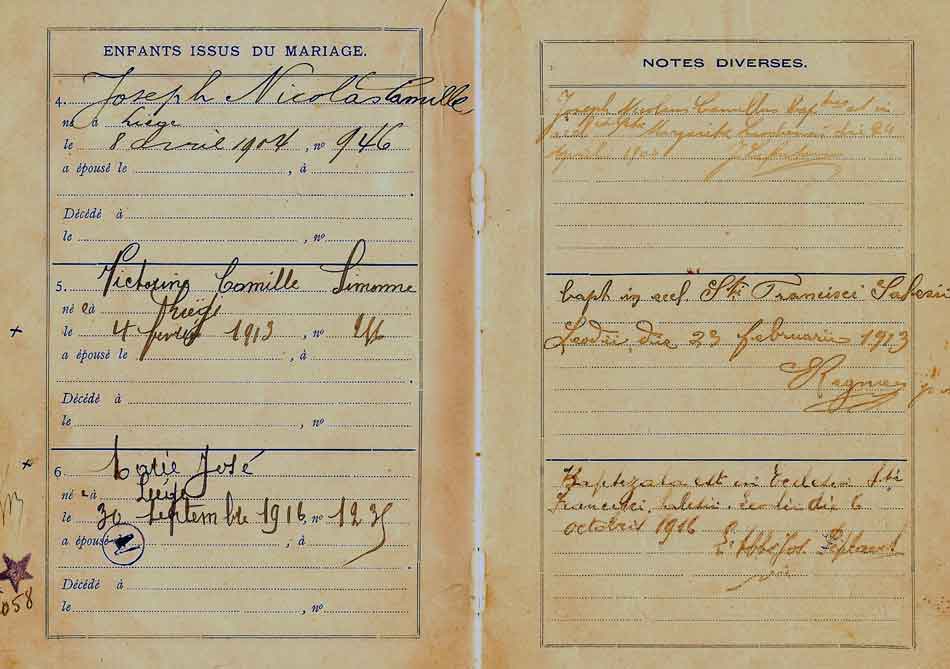 ENFANTS ISSUS DU MARIAGE.
4. Joseph Nicolas Camille
né à Liége
le 8 avril 1904, nº 946
a épousé le , à
Décédé à
le , nº
5. Victorine Camille Simonne
né e à Liége
le 4 fevrier 1913, nº
a épousé le , à
Décédé à
le , nº
6 Marie José
né e à Liége
le 30 Septembre 1916, nº 1235
a épousé , à
Décédé à
le , nº
058
NOTES DIVERSES.
Joseph Nicolaus Camillus Bap est in
Margarita
bapt in eccl. Sti Francisci Salesii
Leodii die 23 februarii 1913
Baptizata est in Ecclesia Sti
Francisci Salesii, Leodii die 6
octobris 1916